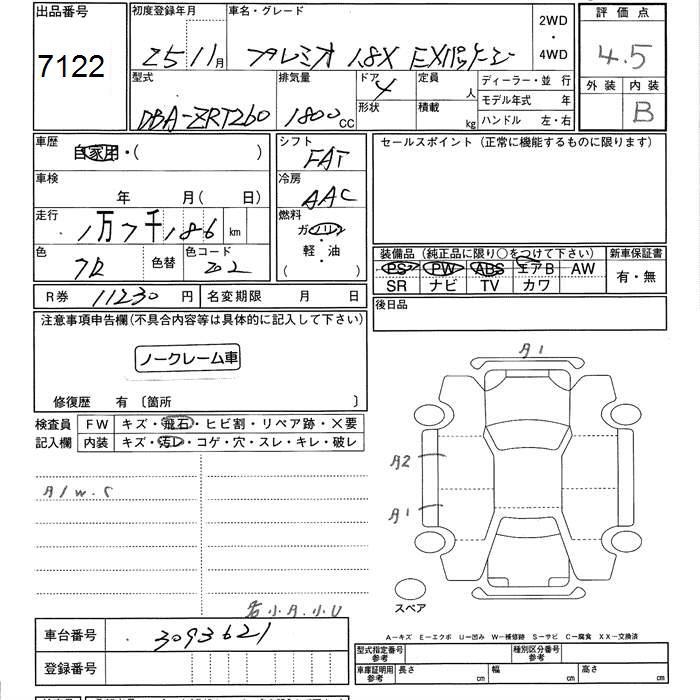 出品番号 初度登録年月 車名・グレード 2WD ・ 4WD 評価点
7122 25 11月 プレミオ 1.8X EXパッケージ 4.5
型式 排気量 ドア 4 定員 人 ディーラー・並行 外装 内装
DBA-ZRT260 1800 CC 形状 積載 kg モデル年式 年 B
ハンドル 左・右
車歴 自家用・( ) シフト FAT セールスポイント (正常に機能するものに限ります)
車検 年 月 ( 日) 冷房 AAC
走行 1万7千186 km 燃料 ガソリン
軽・油
( )
色 クロ 色替 色コード 202
装備品 (純正品に限り○をつけて下さい) 新車保証書
PS PW ABS エアB AW 有・無
SR ナビ TV カワ
R券 11230 円 名変期限 月 日 後日品
注意事項申告欄(不具合内容等は具体的に記入して下さい)
ノークレーム車
修復歴 有 〔箇所 〕
検査員 FW キズ・飛石・ヒビ割・リペア跡・×要
記入欄 内装 キズ・汚レ・コゲ・穴・スレ・キレ・破レ
A1
A2
A1
A1 W.S
スペア
各小A.小U
A―キズ E―エクボ U―凹み W―補修跡 S―サビ C―腐食 XX―交換済
車台番号 3093621
登録番号
型式指定番号 参考 種別区分番号 参考
車庫証明用 参考 長さ cm 幅 cm 高さ cm